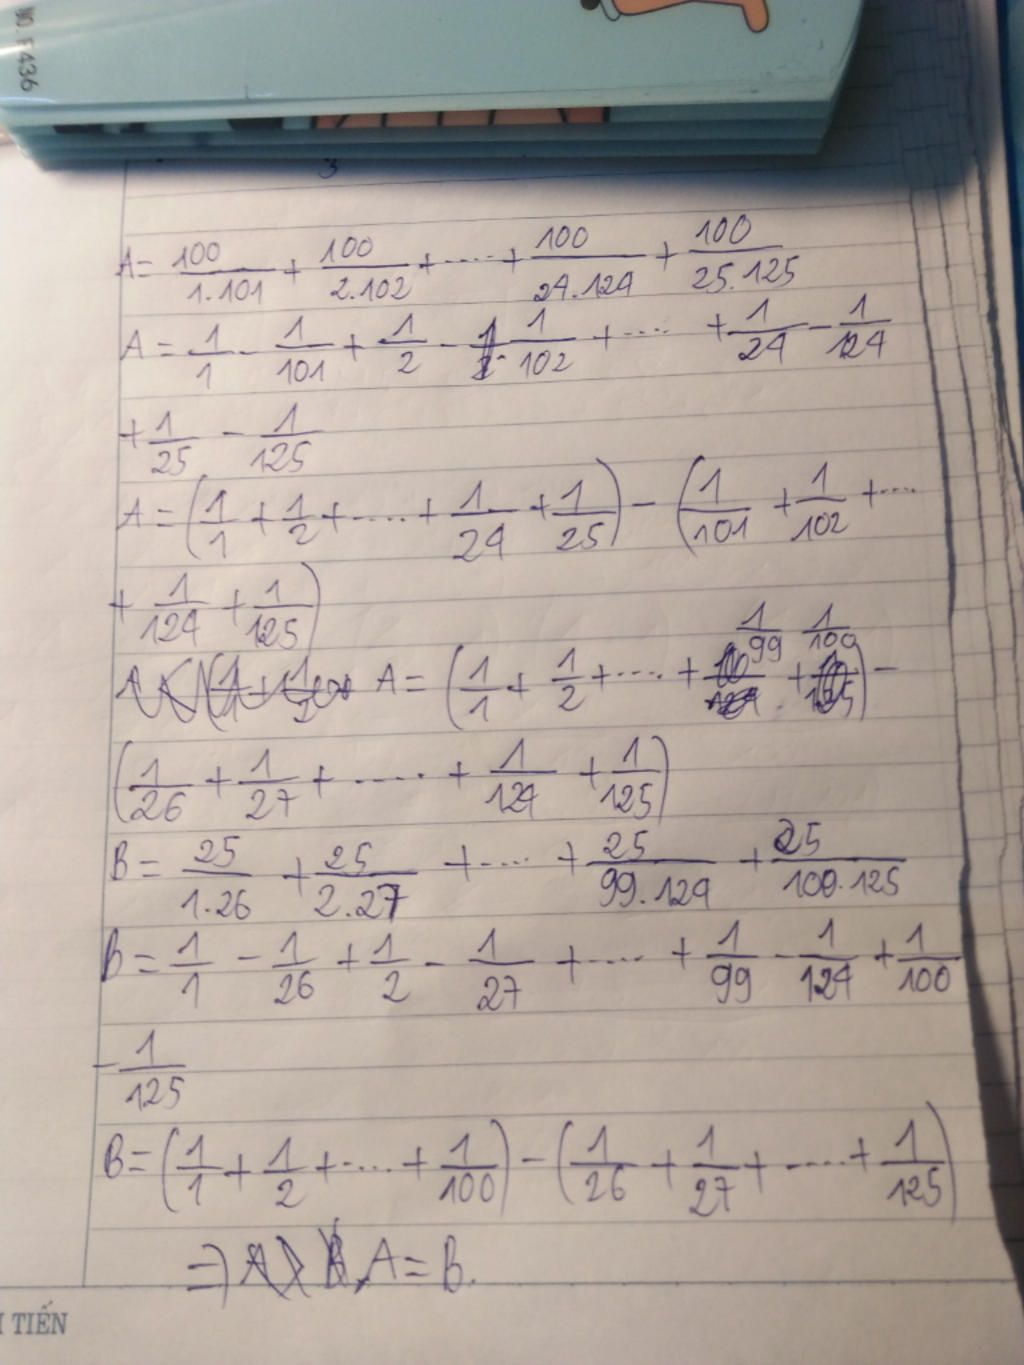 NO. F436
3
A = 100/1.101 + 100/2.102 + .... + 100/24.124 + 100/25.125
A = 1/1 - 1/101 + 1/2 - 1/102 + .... + 1/24 - 1/124
+ 1/25 - 1/125
A = (1/1 + 1/2 + .... + 1/24 + 1/25) - (1/101 + 1/102 + ....
+ 1/124 + 1/125)
A = (1/1 + 1/2 + .... + 1/99 + 1/100) -
(1/26 + 1/27 + ..... + 1/124 + 1/125)
B = 25/1.26 + 25/2.27 + .... + 25/99.124 + 25/100.125
B = 1/1 - 1/26 + 1/2 - 1/27 + .... + 1/99 - 1/124 + 1/100
- 1/125
B = (1/1 + 1/2 + .... + 1/100) - (1/26 + 1/27 + .... + 1/125)
=> A = B.
TIẾN